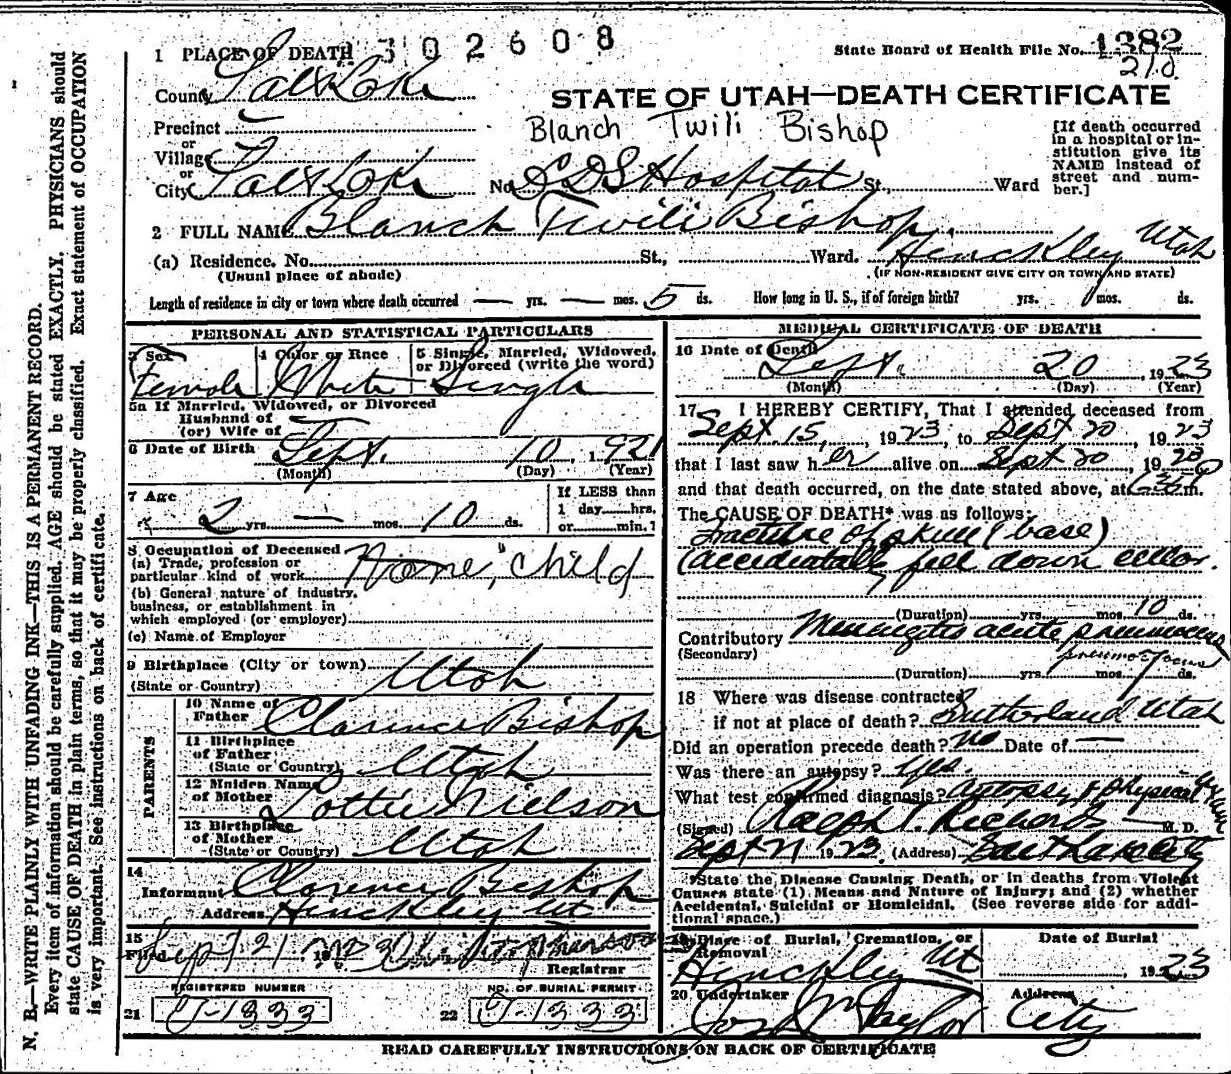 1 PLACE OF DEATH 302608
State Board of Health File No. 1382
210
County Salt Lake
STATE OF UTAH—DEATH CERTIFICATE
Blanch Twili Bishop
Precinct
or
Village
or
City Salt Lake No. L D S Hospital St., Ward
[If death occurred
in a hospital or in-
stitution give its
NAME instead of
street and num-
ber.]
2 FULL NAME Blanch Twili Bishop.
(a) Residence. No. St., Ward. Hinckley Utah
(Usual place of abode) (IF NON-RESIDENT GIVE CITY OR TOWN AND STATE)
Length of residence in city or town where death occurred — yrs. — mos. 5 ds. How long in U. S., if of foreign birth? yrs. mos. ds.
PERSONAL AND STATISTICAL PARTICULARS
3 Sex
Female
4 Color or Race
White
5 Single, Married, Widowed,
or Divorced (write the word)
Single
5a If Married, Widowed, or Divorced
Husband of
(or) Wife of —
6 Date of Birth Sept. 10, 1921
(Month) (Day) (Year)
7 Age
2 yrs. — mos. 10 ds.
If LESS than
1 day hrs.
or min.?
8 Occupation of Deceased
(a) Trade, profession or
particular kind of work None, "child
(b) General nature of industry.
business, or establishment in
which employed (or employer)
(c) Name of Employer
9 Birthplace (City or town)
(State or Country) Utah
PARENTS
10 Name of
Father Clarence Bishop
11 Birthplace
of Father
(State or Country) Utah
12 Maiden Name
of Mother Lottie Nielson
13 Birthplace
of Mother
(State or Country) Utah
14
Informant Clarence Bishop
Address Hinckley Ut
15
Filed Sept 21 19
Registrar
REGISTERED NUMBER
21 J-1333
NO. OF BURIAL PERMIT
22 J-1333
MEDICAL CERTIFICATE OF DEATH
16 Date of Death
Sept. 20, 1923
(Month) (Day) (Year)
17 I HEREBY CERTIFY, That I attended deceased from
Sept 15, 1923, to Sept 20, 1923
that I last saw her alive on Sept 20, 19
and that death occurred, on the date stated above, at m.
The CAUSE OF DEATH* was as follows:
Fracture of skull (base)
(Accidentally fell down cellar.
(Duration) yrs. mos. 10 ds.
Contributory Meningitis acute pneumococcus
(Secondary)
(Duration) yrs. mos. ds.
18 Where was disease contracted
if not at place of death? Sutherland Utah
Did an operation precede death? No Date of —
Was there an autopsy? Yes.
What test confirmed diagnosis? Autopsy & physical
(Signed) Ralph T. Richards M. D.
Sept 21 1923, (Address) Salt Lake City
*State the Disease Causing Death, or in deaths from Violent
Causes state (1) Means and Nature of Injury; and (2) whether
Accidental, Suicidal or Homicidal. (See reverse side for addi-
tional space.)
19 Place of Burial, Cremation, or
Removal
Hinckley Ut
Date of Burial
, 1923
20 Undertaker
Jos Wm Taylor
Address
City
READ CAREFULLY INSTRUCTIONS ON BACK OF CERTIFICATE
N. B.—WRITE PLAINLY WITH UNFADING INK—THIS IS A PERMANENT RECORD.
Every item of information should be carefully supplied. AGE should be stated EXACTLY. PHYSICIANS should
state CAUSE OF DEATH in plain terms, so that it may be properly classified. Exact statement of OCCUPATION
is very important. See instructions on back of certificate.